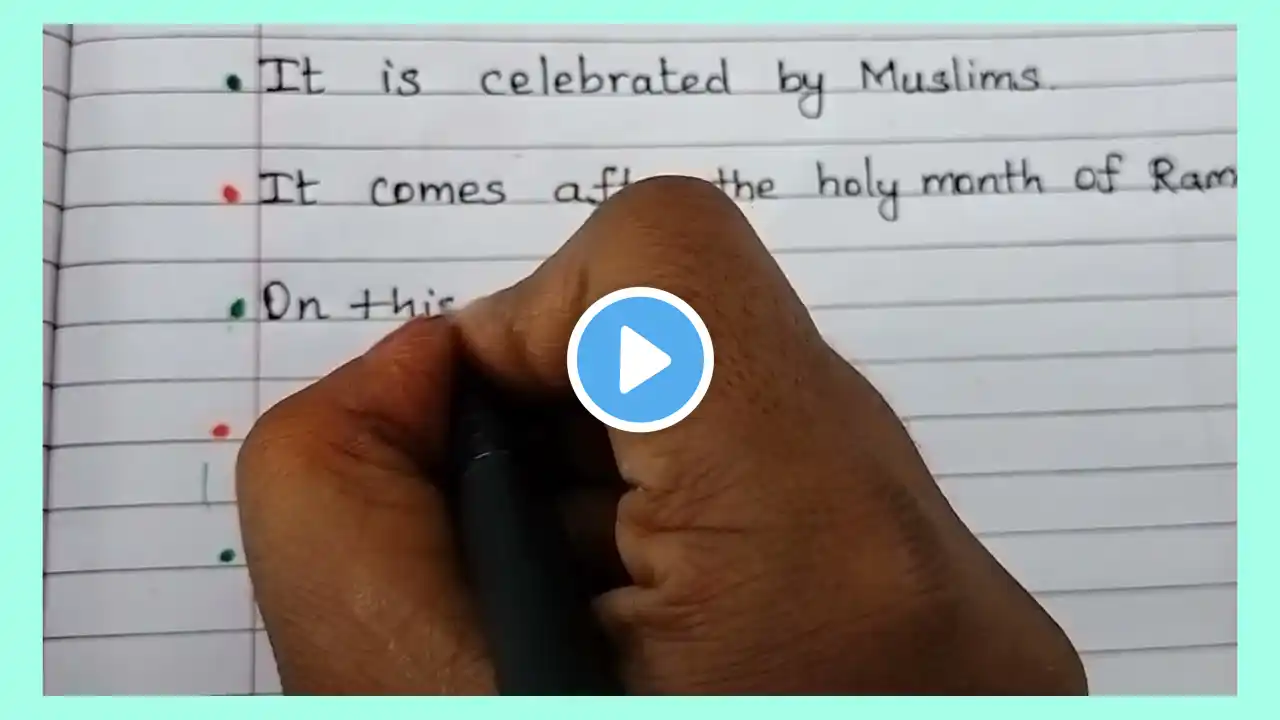 It is celebrated by Muslims.
It comes the holy month of
On this